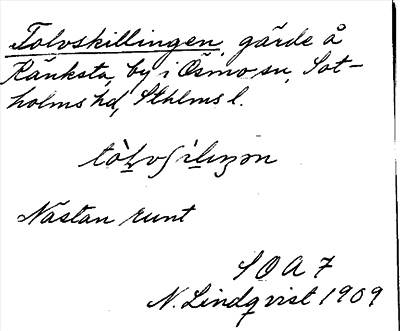 Tolvskillingen, gärde å
Ränksta, by i Ösmo sn, Sot-
holms hd, Sthlms l.
Nästan runt
SOA 7
N. Lindqvist 1909